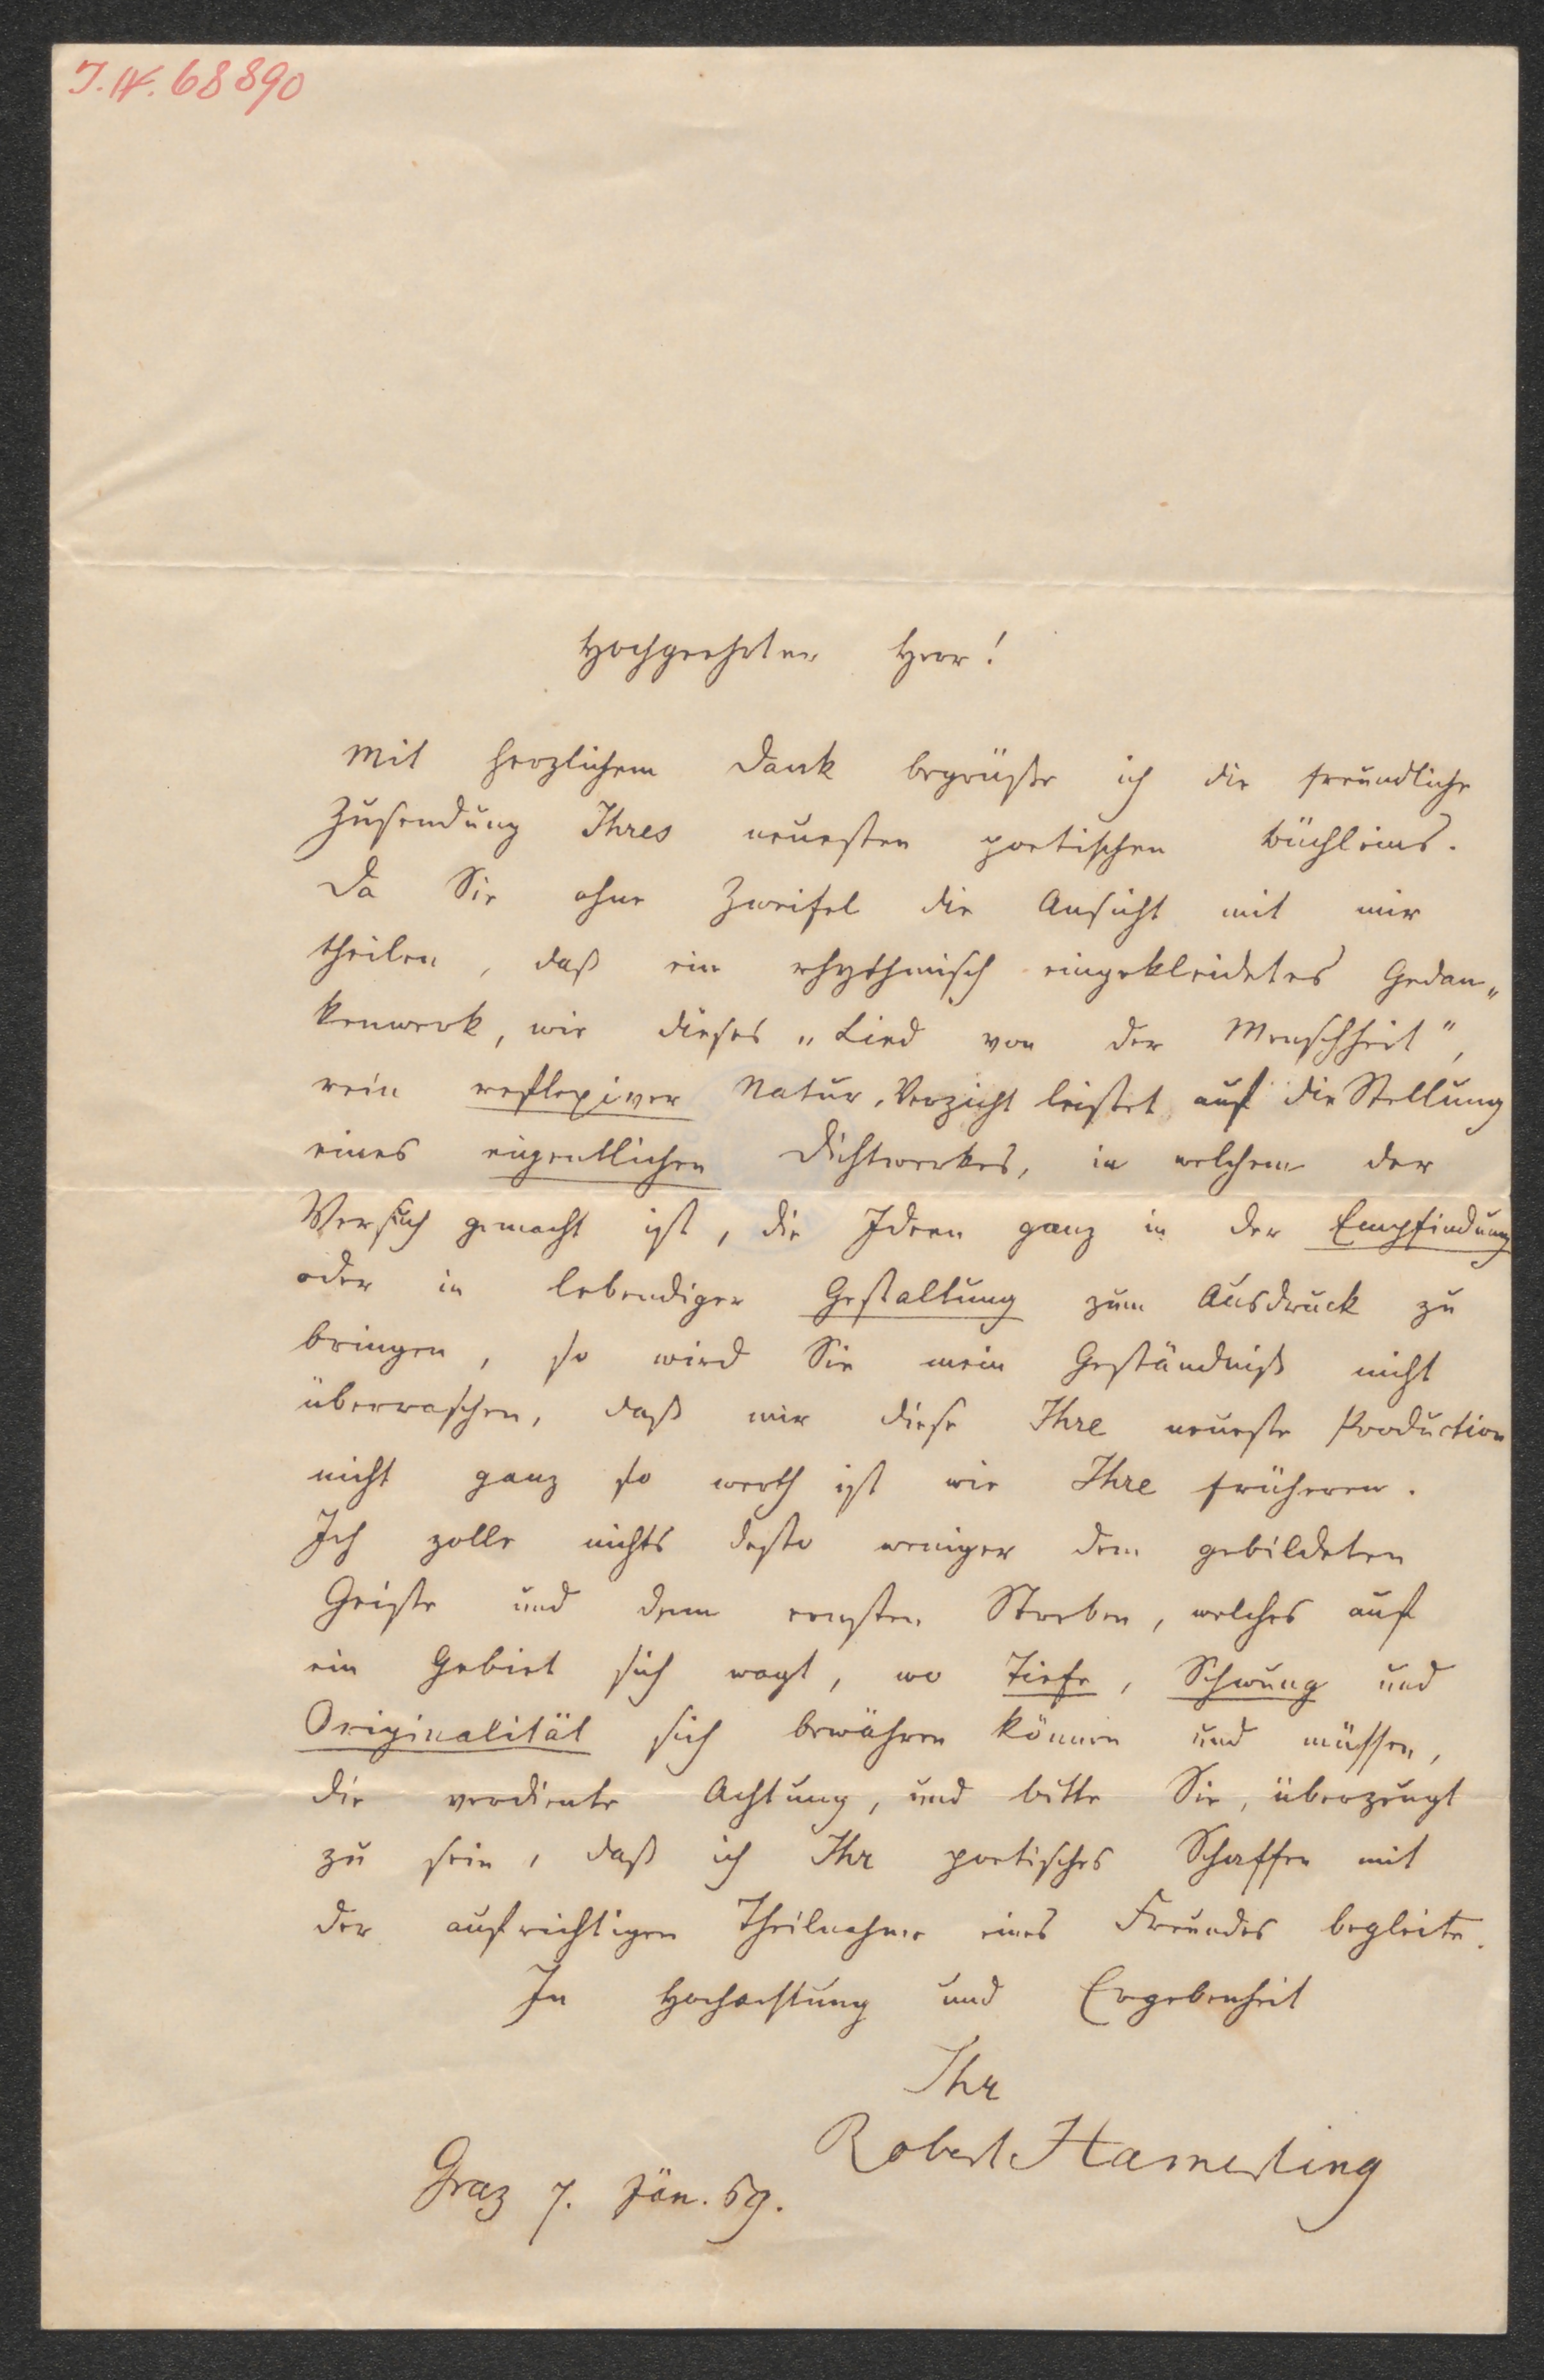 J.N. 68890
Hochgeehrter Herr!
Mit herzlichem Dank begrüße ich die freundliche
Zusendung Ihres neuesten poetischen Büchleins.
Da Sie ohne Zweifel die Ansicht mit mir
theilen, daß ein rhythmisch eingekleidetes Gedan„
kenwerk, wie dieses „Lied von der Menschheit",
rein reflexiver Natur, Verzicht leistet auf die Stellung
eines eigentlichen Dichtwerkes, in welchem der
Versuch gemacht ist, die Ideen ganz in der Empfindung
oder in lebendiger Gestaltung zum Ausdruck zu
bringen, so wird Sie mein Geständniß nicht
überraschen, daß mir diese Ihre neueste Production
nicht ganz so werth ist wie Ihre früheren.
Ich zolle nichts desto weniger dem gebildeten
Geiste und dem ernsten Streben, welches auf
ein Gebiet sich wagt, wo Tiefe, Schwung und
Originalität sich bewähren können und müssen,
die verdiente Achtung, und bitte Sie, überzeugt
zu sein, daß ich Ihr poetisches Schaffen mit
der aufrichtigen Theilnahme eines Freundes begleite.
In Hochachtung und Ergebenheit
Ihr
Robert Hamerling
Graz 7. Jän. 69.